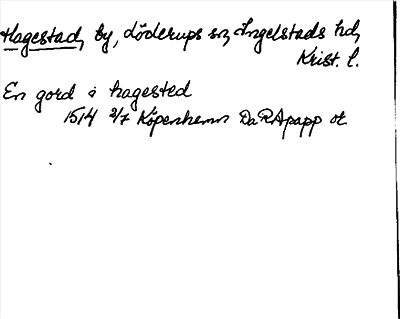 Hagestad, by, Löderups sn, Ingelstads hd,
Krist. l.
En gord i hagested
1514 2/7 Köpenhamn DaRApapp or.